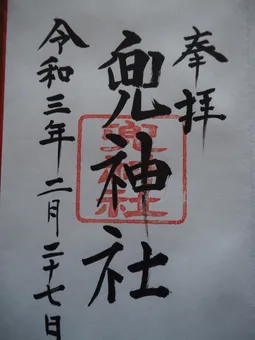 奉拝
兜神社
兜神社
令和三年二月二十七日